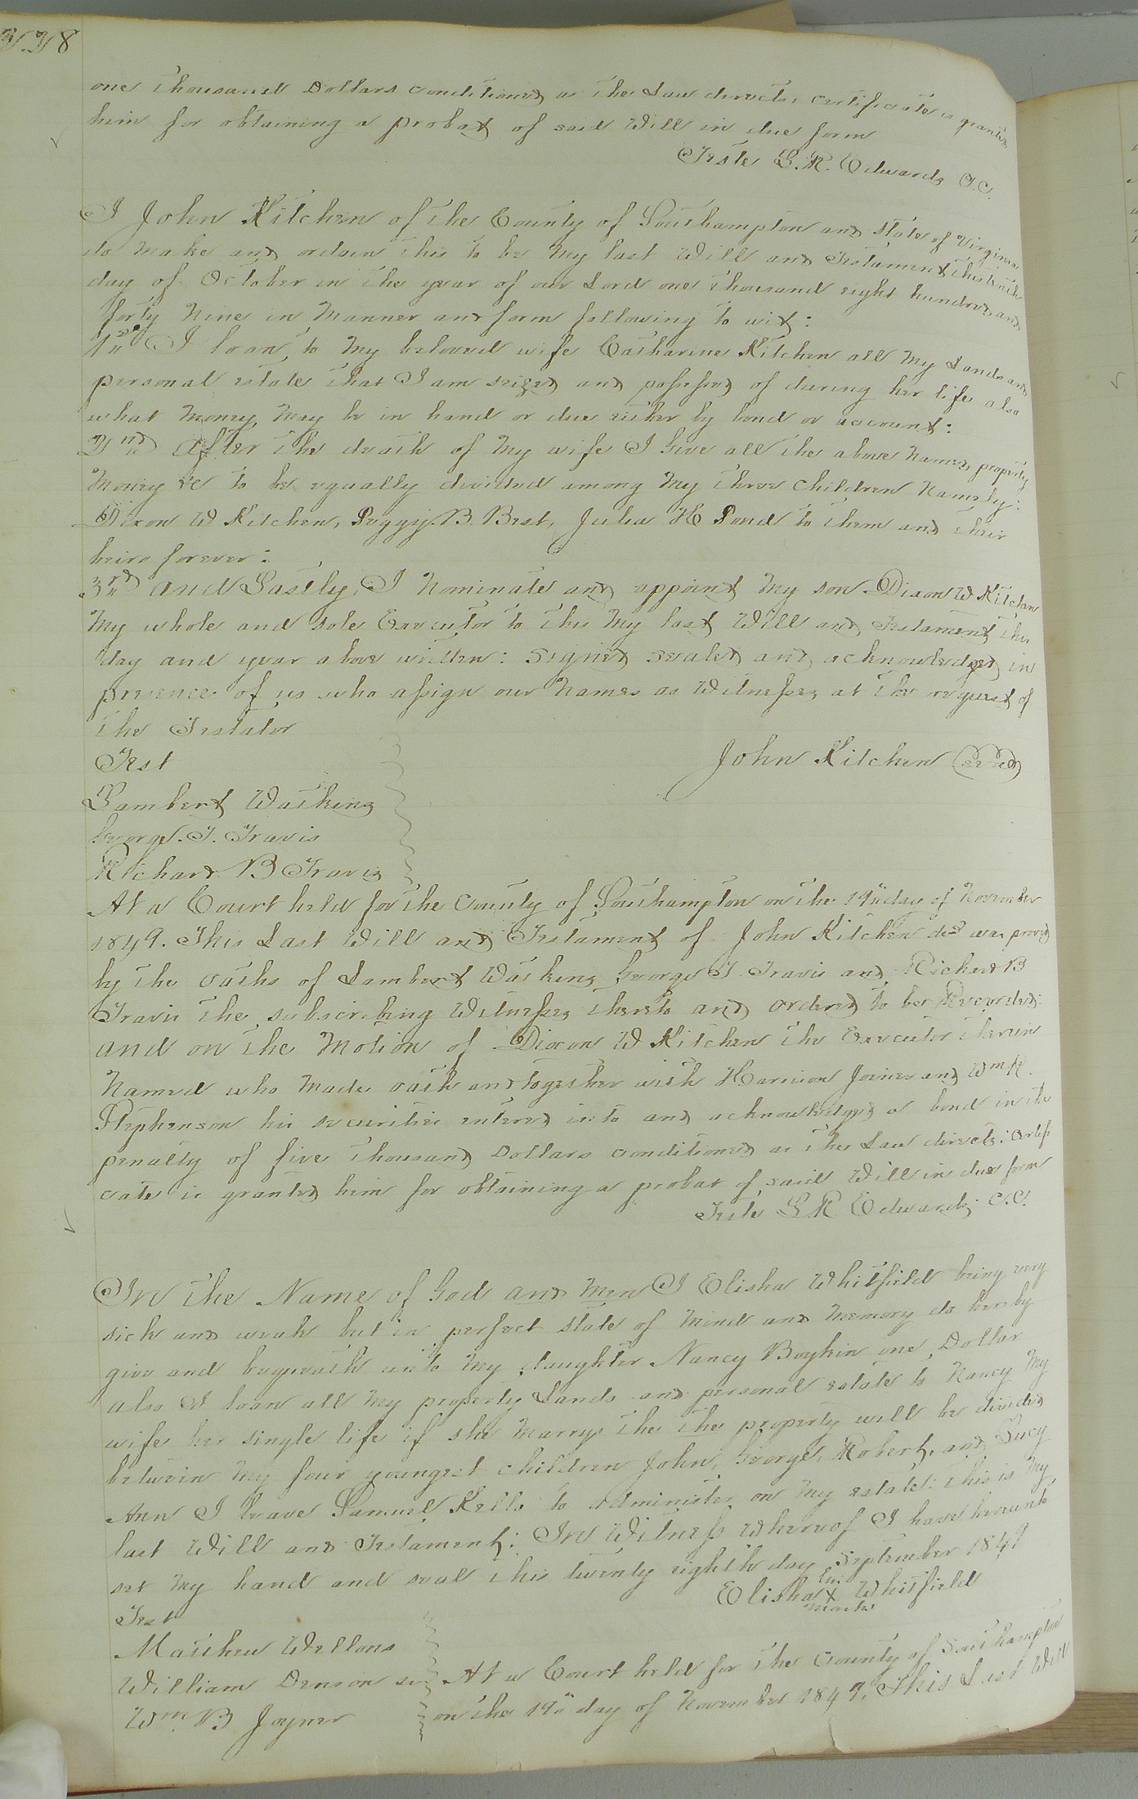 one thousand Dollars conditioned as the Law directs certificate is granted
him for obtaining a probat of said Will in due form
Teste L. R. Edwards C.C.
I John Kitchen of the County of Southampton and State of Virginia
do make and ordain this to be my last Will and Testament this
day of October in the year of our Lord one thousand eight hundred and
forty Nine in Manner and form following to wit:
1st I loan to my beloved wife Catharine Kitchen all my Lands and
personal estate that I am seized and possessed of during her life also
what money may be in hand or due either by bond or account:
2nd After the death of my wife I give all the above named property
Money &c to be equally divided among my three children Namely:
Dixon W Kitchen, Peggy B. Best, Julia H Pond to them and their
heirs forever:
3rd and Lastly, I Nominate and appoint my son Dixon W Kitchen
my whole and sole Executor to this my last Will and Testament the
day and year above written: signed sealed and acknowledged in
presence of us who assign our names as Witnesses at the request of
the Testator
Test
John Kitchen (seal)
Lambert Watkins
George. T. Travis
Richard B Travis
At a Court held for the County of Southampton on the 19th day of November
1849. This Last Will and Testament of John Kitchen decd was proved
by the oaths of Lambert Watkins George T Travis and Richard B
Travis the subscribing Witnesses thereto and ordered to be Recorded:
and on the Motion of Dixon W Kitchen the Executor therein
Named who made oath and together with Harrison Joiner and Wm R.
Stephenson his securities entered into and acknowledged a bond in the
penalty of five thousand Dollars conditioned as the Law directs: certifi
cate is granted him for obtaining a probat of said Will in due form
Teste L R Edwards C.C.
In the Name of God and Men I Elisha Whitfield being very
sick and weak but in perfect state of Mind and Memory do hereby
give and bequeath unto my daughter Nancy Boykin one Dollar
also I loan all my property Lands and personal estate to Nancy my
wife her single life if she marrys the the property will be divided
between my four youngest children John, George, Robert, and Lucy
Ann I leave Samuel Kello to Administer on my estate: this is my
last Will and Testament: In Witness Whereof I have hereunto
set my hand and seal this twenty eighth day September 1849
Elisha his X mark Whitfield
Test
Matthew Wellons
William Denson sr
Wm B Joyner
At a Court held for the County of Southampton
on the 19th day of November 1849. This Last Will